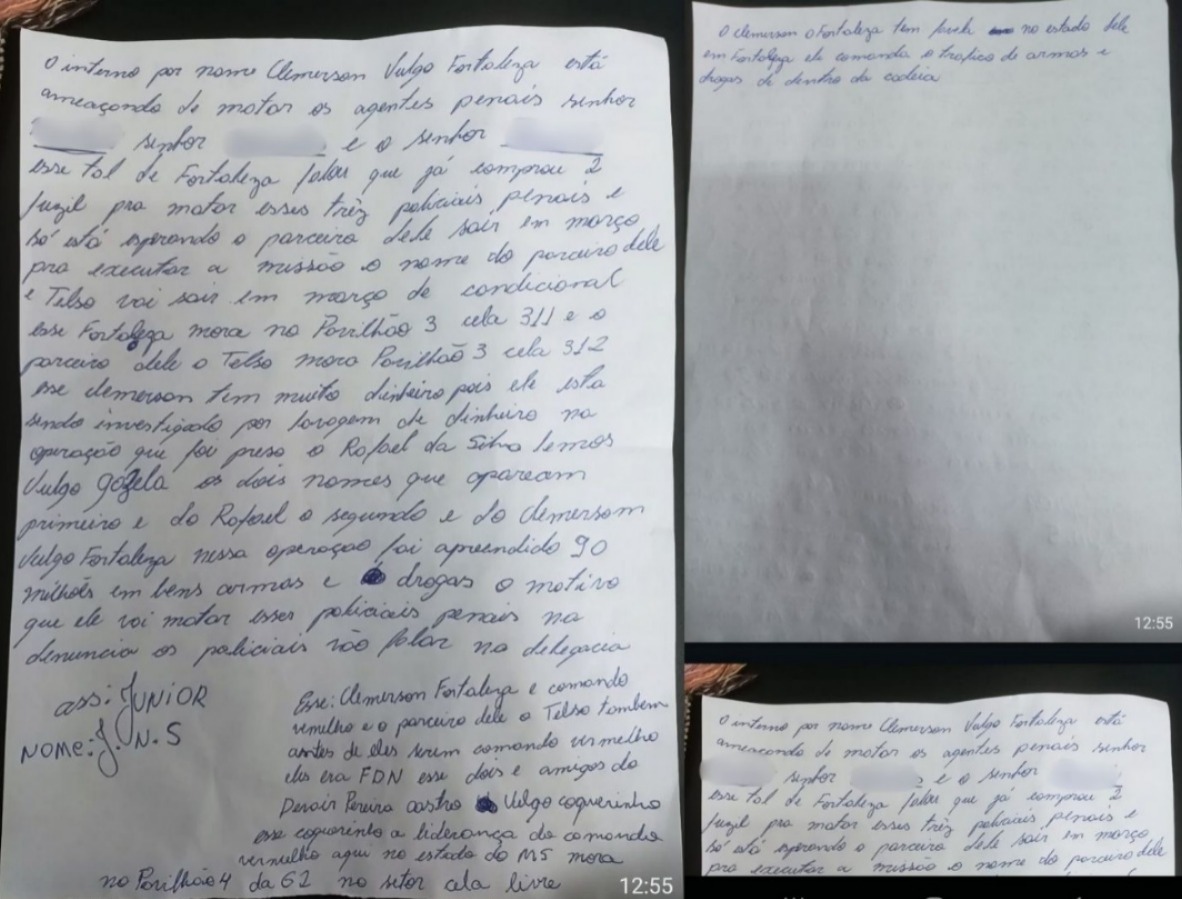 O interno por nome Clemerson Vulgo Fortaleza está
ameaçando de matar os agentes penais senhor
senhor e o senhor
esse tal de Fortaleza falou que já comprou 2
fuzil pra matar esses três policiais penais e
só está esperando o parceiro dele sair em março
pra executar a missão o nome do parceiro dele
e Telso vai sair em março de condicional
esse Fortaleza mora no Pavilhão 3 cela 311 e o
parceiro dele o Telso mora Pavilhão 3 cela 312
esse clemerson tem muito dinheiro pois ele esta
sendo investigado por lavagem de dinheiro na
operação que foi preso o Rafael da Silva lemos
Vulgo gazela os dois nomes que aparecem
primeiro e do Rafael o segundo e do Clemersom
Vulgo Fortaleza nessa operaçao foi apreendido 90
milhões em bens armas e drogas o motivo
que ele vai matar esses policiais penais na
denuncia os policiais vão falar na delegacia
ass: JUNIOR
NOME: J. N. S
Esse: Clemerson Fortaleza e comando
vermelho e o parceiro dele o Telso tambem
antes de eles serem comando vermelho
eles era FDN esse dois e amigos do
Pereira castro Vulgo coquerinho
esse coquerinho a liderança do comando
vermelho aqui no estado do MS mora
no Pavilhão 4 da 62 no setor cela livre
12:55
O clemerson o Fortaleza tem no estado dele
em Fortaleza ele comanda o trafico de armas e
drogas de dentro da cadeia
12:55
O interno por nome Clemerson Vulgo Fortaleza está
ameaçando de matar os agentes penais senhor
senhor e o senhor
esse tal de Fortaleza falou que já comprou 2
fuzil pra matar esses três policiais penais e
só está esperando o parceiro dele sair em março
pra executar a missão o nome do parceiro dele